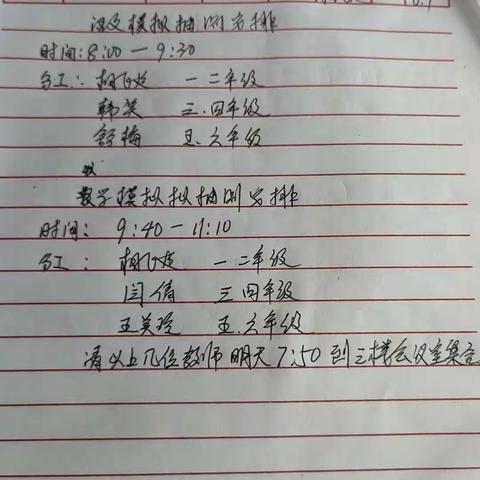 语文模拟抽测安排
时间:8:00 — 9:30
分工: 一二年级
韩英 三.四年级
舒梅 五.六年级
数学模拟拟抽测安排
时间: 9:40 — 11:10
分工: 一二年级
闫倩 三四年级
王美玲 五.六年级
请以上几位教师明天7:50到三楼会议室集合